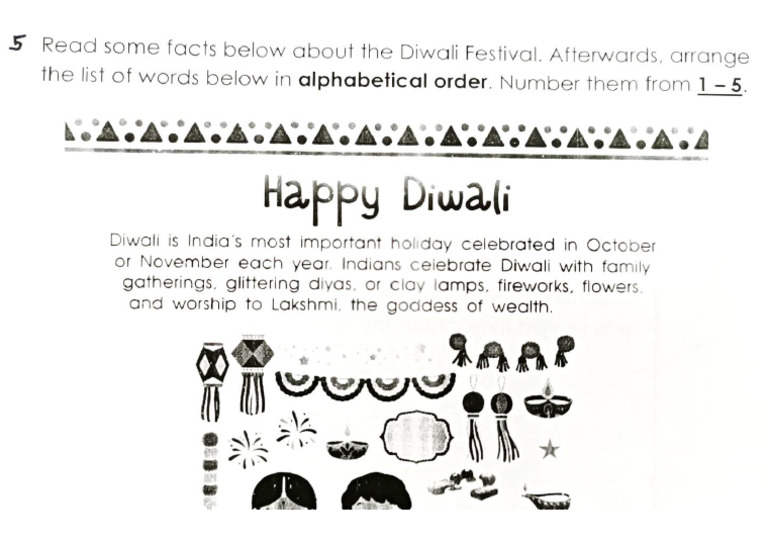 5 Read some facts below about the Diwali Festival. Afterwards, arrange
the list of words below in alphabetical order. Number them from 1 – 5.
Happy Diwali
Diwali is India's most important holiday celebrated in October
or November each year. Indians celebrate Diwali with family
gatherings, glittering divas, or clay lamps, fireworks, flowers,
and worship to Lakshmi, the goddess of wealth.